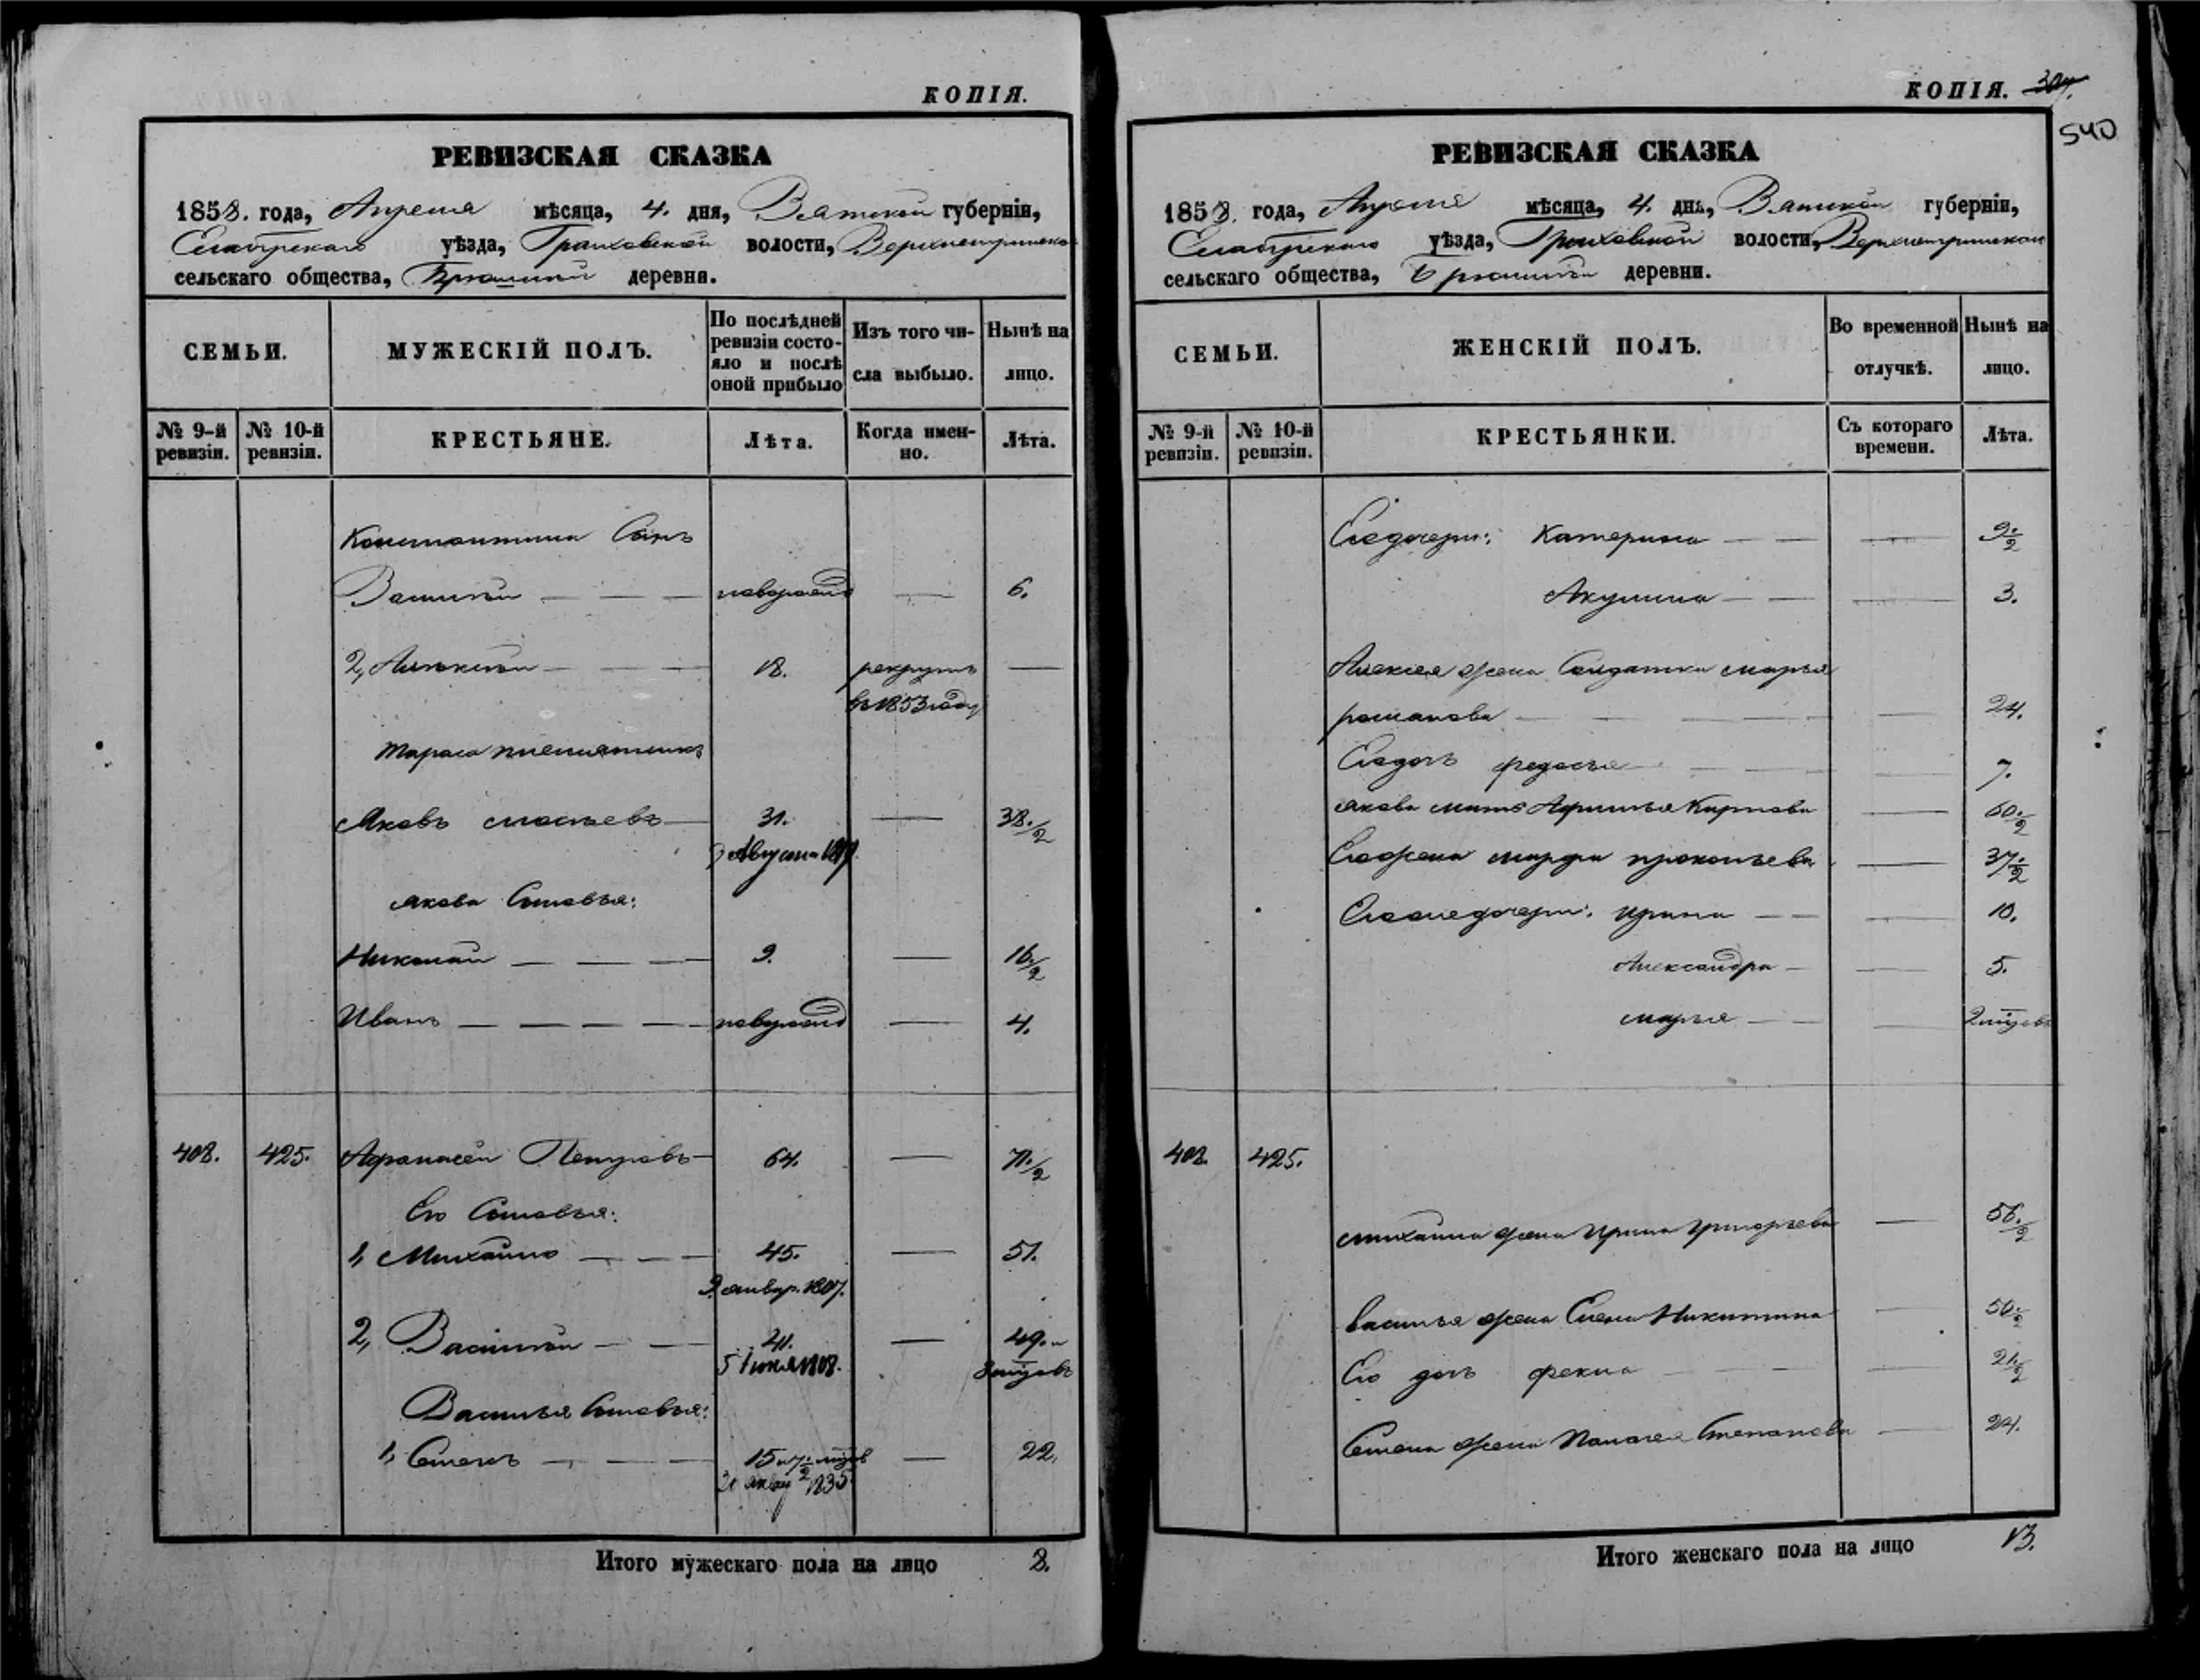 КОПІЯ.
РЕВИЗСКАЯ СКАЗКА
1858. года, Апреля мѣсяца, 4. дня, Вятской губерніи,
Елабугскаго уѣзда, Граховской волости,
сельскаго общества, деревни.
СЕМЬИ.
МУЖЕСКІЙ ПОЛЪ.
По послѣдней ревизіи состо-
яло и послѣ
оной прибыло
Изъ того чи-
сла выбыло.
Нынѣ на
лицо.
№ 9-й ревизіи.
№ 10-й ревизіи.
КРЕСТЬЯНЕ.
Лѣта.
Когда имен-
но.
Лѣта.
Константина Сынъ
Василій — — — новорожд — 6.
2, Алексѣй — — — 18. рекрутъ —
въ 1853 году
Тараса племянникъ
Яковъ — 31. — 38./2
Августа
Якова Сыновья:
Николай — — — 9. — 16./2
Иванъ — — — — новорожд — 4.
408. 425. Афанасей Петровъ — 64. — 71./2
Его Сыновья:
1, Михайло — — — 45. — 51.
9. январ. 1807.
2, Василій — — — 41. — 49. и
5 Іюля 1808. 8 мѣсяцовъ
Василья Сыновья:
1, Семенъ — — — 15 и 7./2 мѣсяцов — 22.
1835
Итого мужескаго пола на лицо 8.
КОПІЯ.
540
РЕВИЗСКАЯ СКАЗКА
1858. года, Апреля мѣсяца, 4. дня, Вятской губерніи,
Елабугскаго уѣзда, Граховской волости,
сельскаго общества, деревни.
СЕМЬИ.
ЖЕНСКІЙ ПОЛЪ.
Во временной
отлучкѣ.
Нынѣ на
лицо.
№ 9-й ревизіи.
№ 10-й ревизіи.
КРЕСТЬЯНКИ.
Съ котораго
времени.
Лѣта.
Его дочери: Катерина — — — 9./2
Акулина — — — 3.
Алексея жена Солдатка марья
романова — — — — — 24.
Его дочь федосья — — — 7.
якова мать Афимья Карпова — 60./2
Его жена марфа прокопьева — 37./2
дочери: ирина — — — 10.
Александра — — 5.
марья — — — 2 мѣсяцовъ
408. 425.
михайла жена Ирина григорьева — 56./2
василья жена Елена Никитина — 50./2
Его дочь фекла — — — 21./2
Семена жена Палагея Степанова — 24.
Итого женскаго пола на лицо 13.